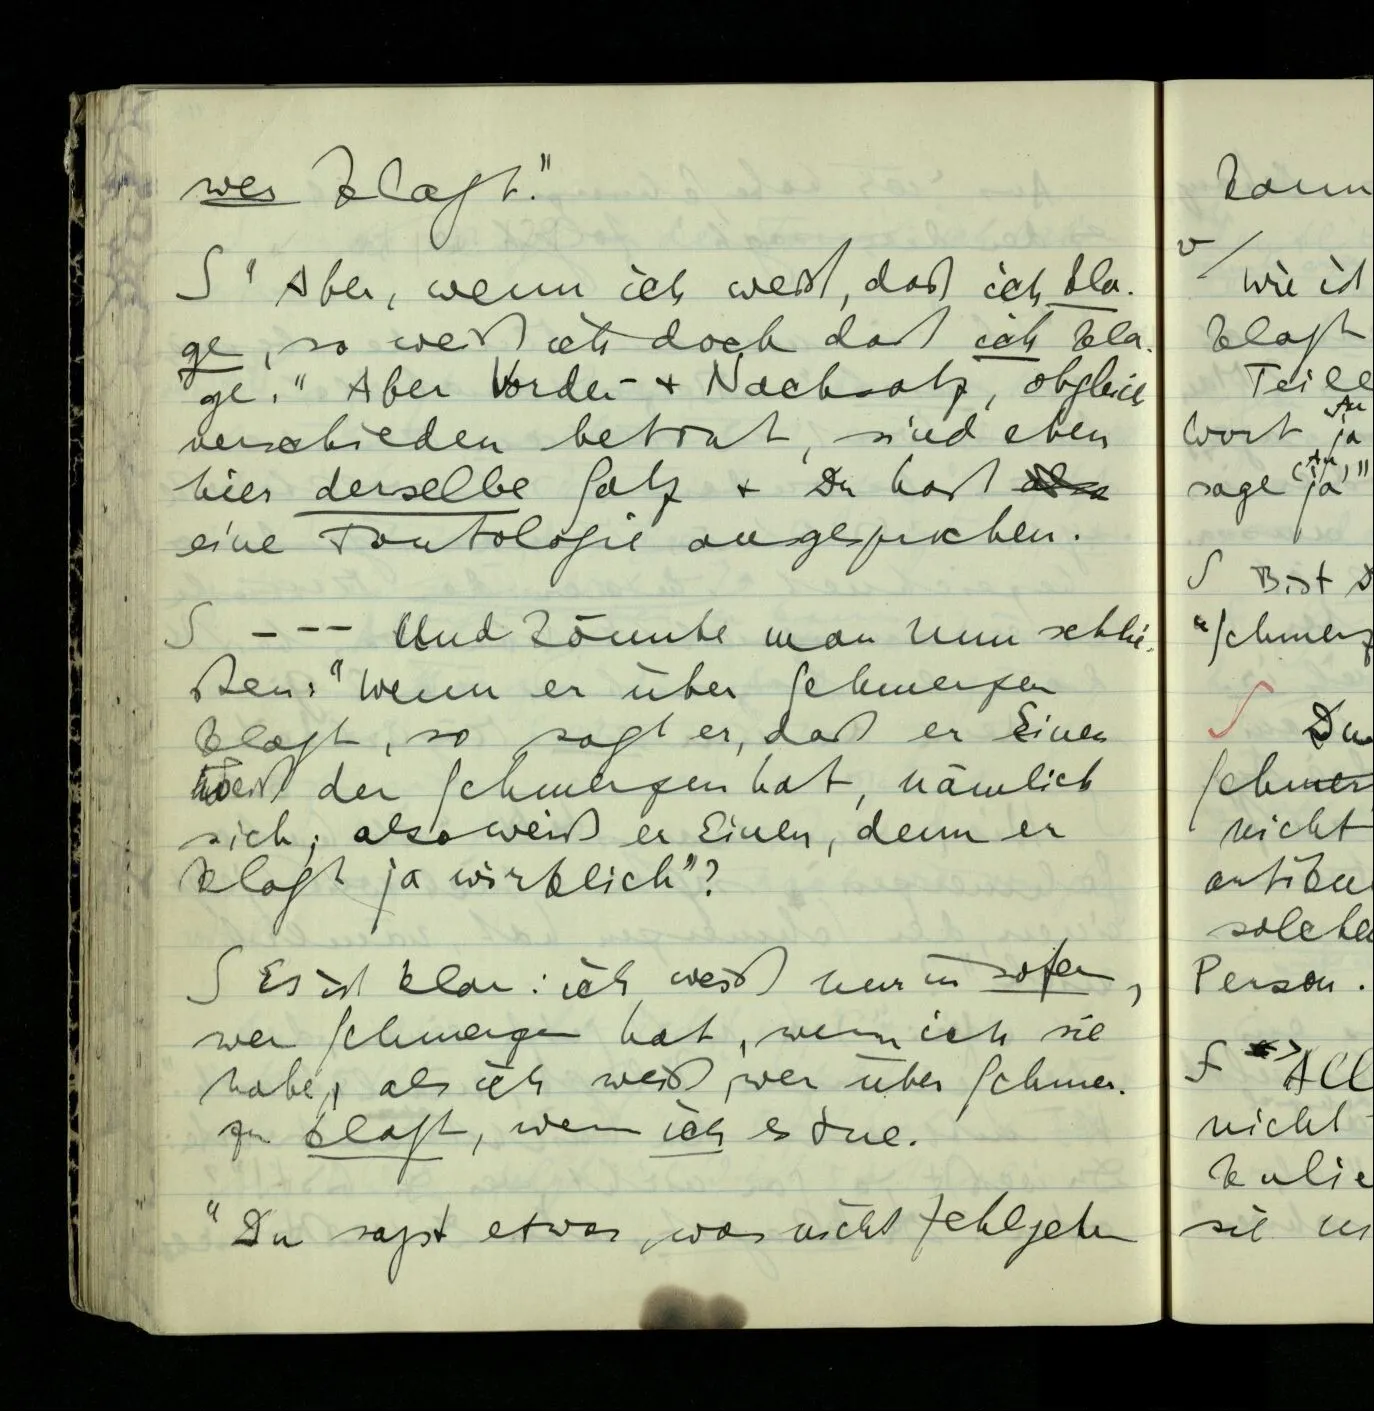 wer klagt."
∫ "Aber, wenn ich weiß, daß ich kla-
ge, so weiß ich doch daß ich kla-
ge." Aber Vorder- + Nachsatz, obgleich
verschieden betont, sind eben
hier derselbe Satz + Du hast
eine Tautologie ausgesprochen.
∫ --- Und könnte man nun schlie-
ßen: "Wenn er über Schmerzen
klagt, so sagt er, daß er Einen
weiß der Schmerzen hat, nämlich
sich; also weiß er Einen, denn er
klagt ja wirklich"?
∫ Es ist klar: ich weiß nur in sofern,
wer Schmerzen hat, wenn ich sie
habe, als ich weiß, wer über Schmer-
zen klagt, wenn ich es tue.
"Du sagst etwas, was nicht fehlgehen
kann
Wie ist
klagt
Teile
Wort ja
sage "ja,"
∫ Bist D
"Schmerz
∫ Du
Schmer
nicht
artiku
solche
Person.
All
nicht
sie